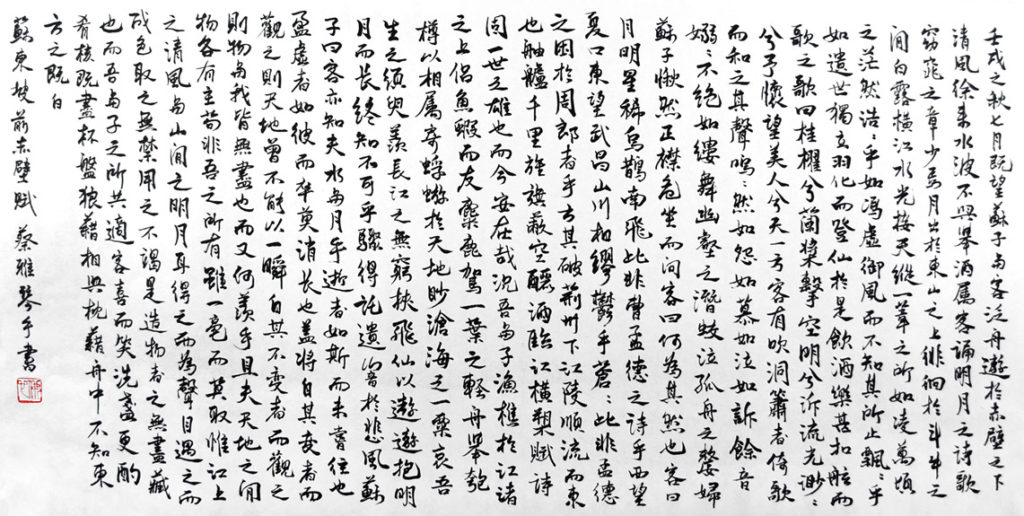 壬戌之秋七月既望蘇子與客泛舟遊於赤壁之下
清風徐來水波不興舉酒屬客誦明月之詩歌
窈窕之章少焉月出於東山之上徘徊於斗牛之
間白露橫江水光接天縱一葦之所如凌萬頃
之茫然浩〻乎如馮虛御風而不知其所止飄〻乎
如遺世獨立羽化而登仙於是飲酒樂甚扣舷而
歌之歌曰桂櫂兮蘭槳擊空明兮泝流光渺〻
兮予懷望美人兮天一方客有吹洞簫者倚歌
而和之其聲嗚〻然如怨如慕如泣如訴餘音
嫋〻不絕如縷舞幽壑之潛蛟泣孤舟之嫠婦
蘇子愀然正襟危坐而問客曰何為其然也客曰
月明星稀烏鵲南飛此非曹孟德之詩乎西望
夏口東望武昌山川相繆鬱乎蒼〻此非孟德
之困於周郎者乎方其破荊州下江陵順流而東
也舳艫千里旌旗蔽空釃酒臨江橫槊賦詩
固一世之雄也而今安在哉況吾與子漁樵於江渚
之上侶魚蝦而友麋鹿駕一葉之輕舟舉匏
樽以相屬寄蜉蝣於天地眇滄海之一粟哀吾
生之須臾羨長江之無窮挾飛仙以遨遊抱明
月而長終知不可乎驟得託遺響於悲風蘇
子曰客亦知夫水與月乎逝者如斯而未嘗往也
盈虛者如彼而卒莫消長也蓋將自其變者而
觀之則天地曾不能以一瞬自其不變者而觀之
則物與我皆無盡也而又何羨乎且夫天地之間
物各有主苟非吾之所有雖一毫而莫取惟江上
之清風與山間之明月耳得之而為聲目遇之而
成色取之無禁用之不竭是造物者之無盡藏
也而吾與子之所共適客喜而笑洗盞更酌
肴核既盡杯盤狼藉相與枕藉舟中不知東
方之既白
蘇東坡前赤壁賦 蔡雅琴手書